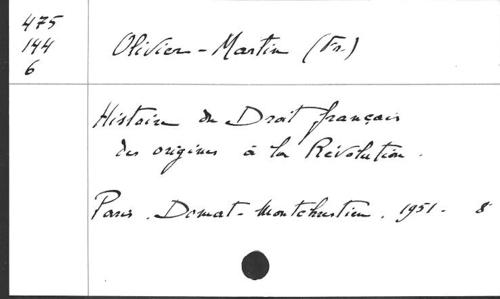 475
144
6
Olivier-Martin (Fr.)
Histoire du Droit français
des origines à la Révolution.
Paris. Domat-Montchrestien. 1951. 8